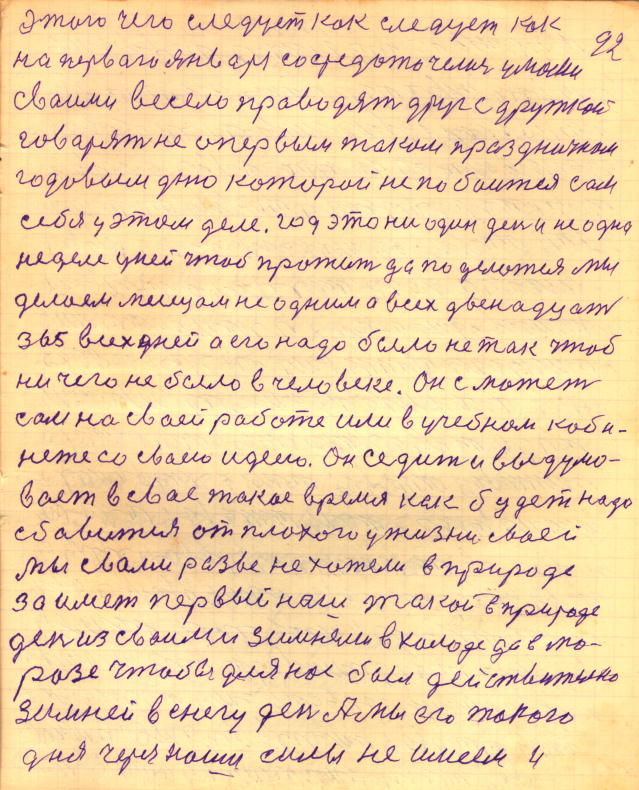 92
этого чего следует как следует как
на перваго января сосредоточения умами
своими весело праводят друг с дружкой
говарят не о первым таком праздничном
годовым дню которой не побоится сам
себя у этом деле. год это ни один ден и не одна
неделе у ней чтоб прожит да поделотся мы
делаем месцам не одним а всех двенадцат
365 всех дней а его надо было не так чтоб
ничего не было в человеке. Он с может
сам на своей работе или в учебном каби-
нете со своею идею. Он седит и выдумо-
вает в свае такое время как будет надо
сбавится от плохого у жизни своей
мы свами разве не хотели в природе
заимет первый наш такой в природе
ден из своими зимнями в холоде да в мо-
розе чтобы для нас был действительно
зимней в снегу ден А мы его такого
дня через наши силы не имеем и